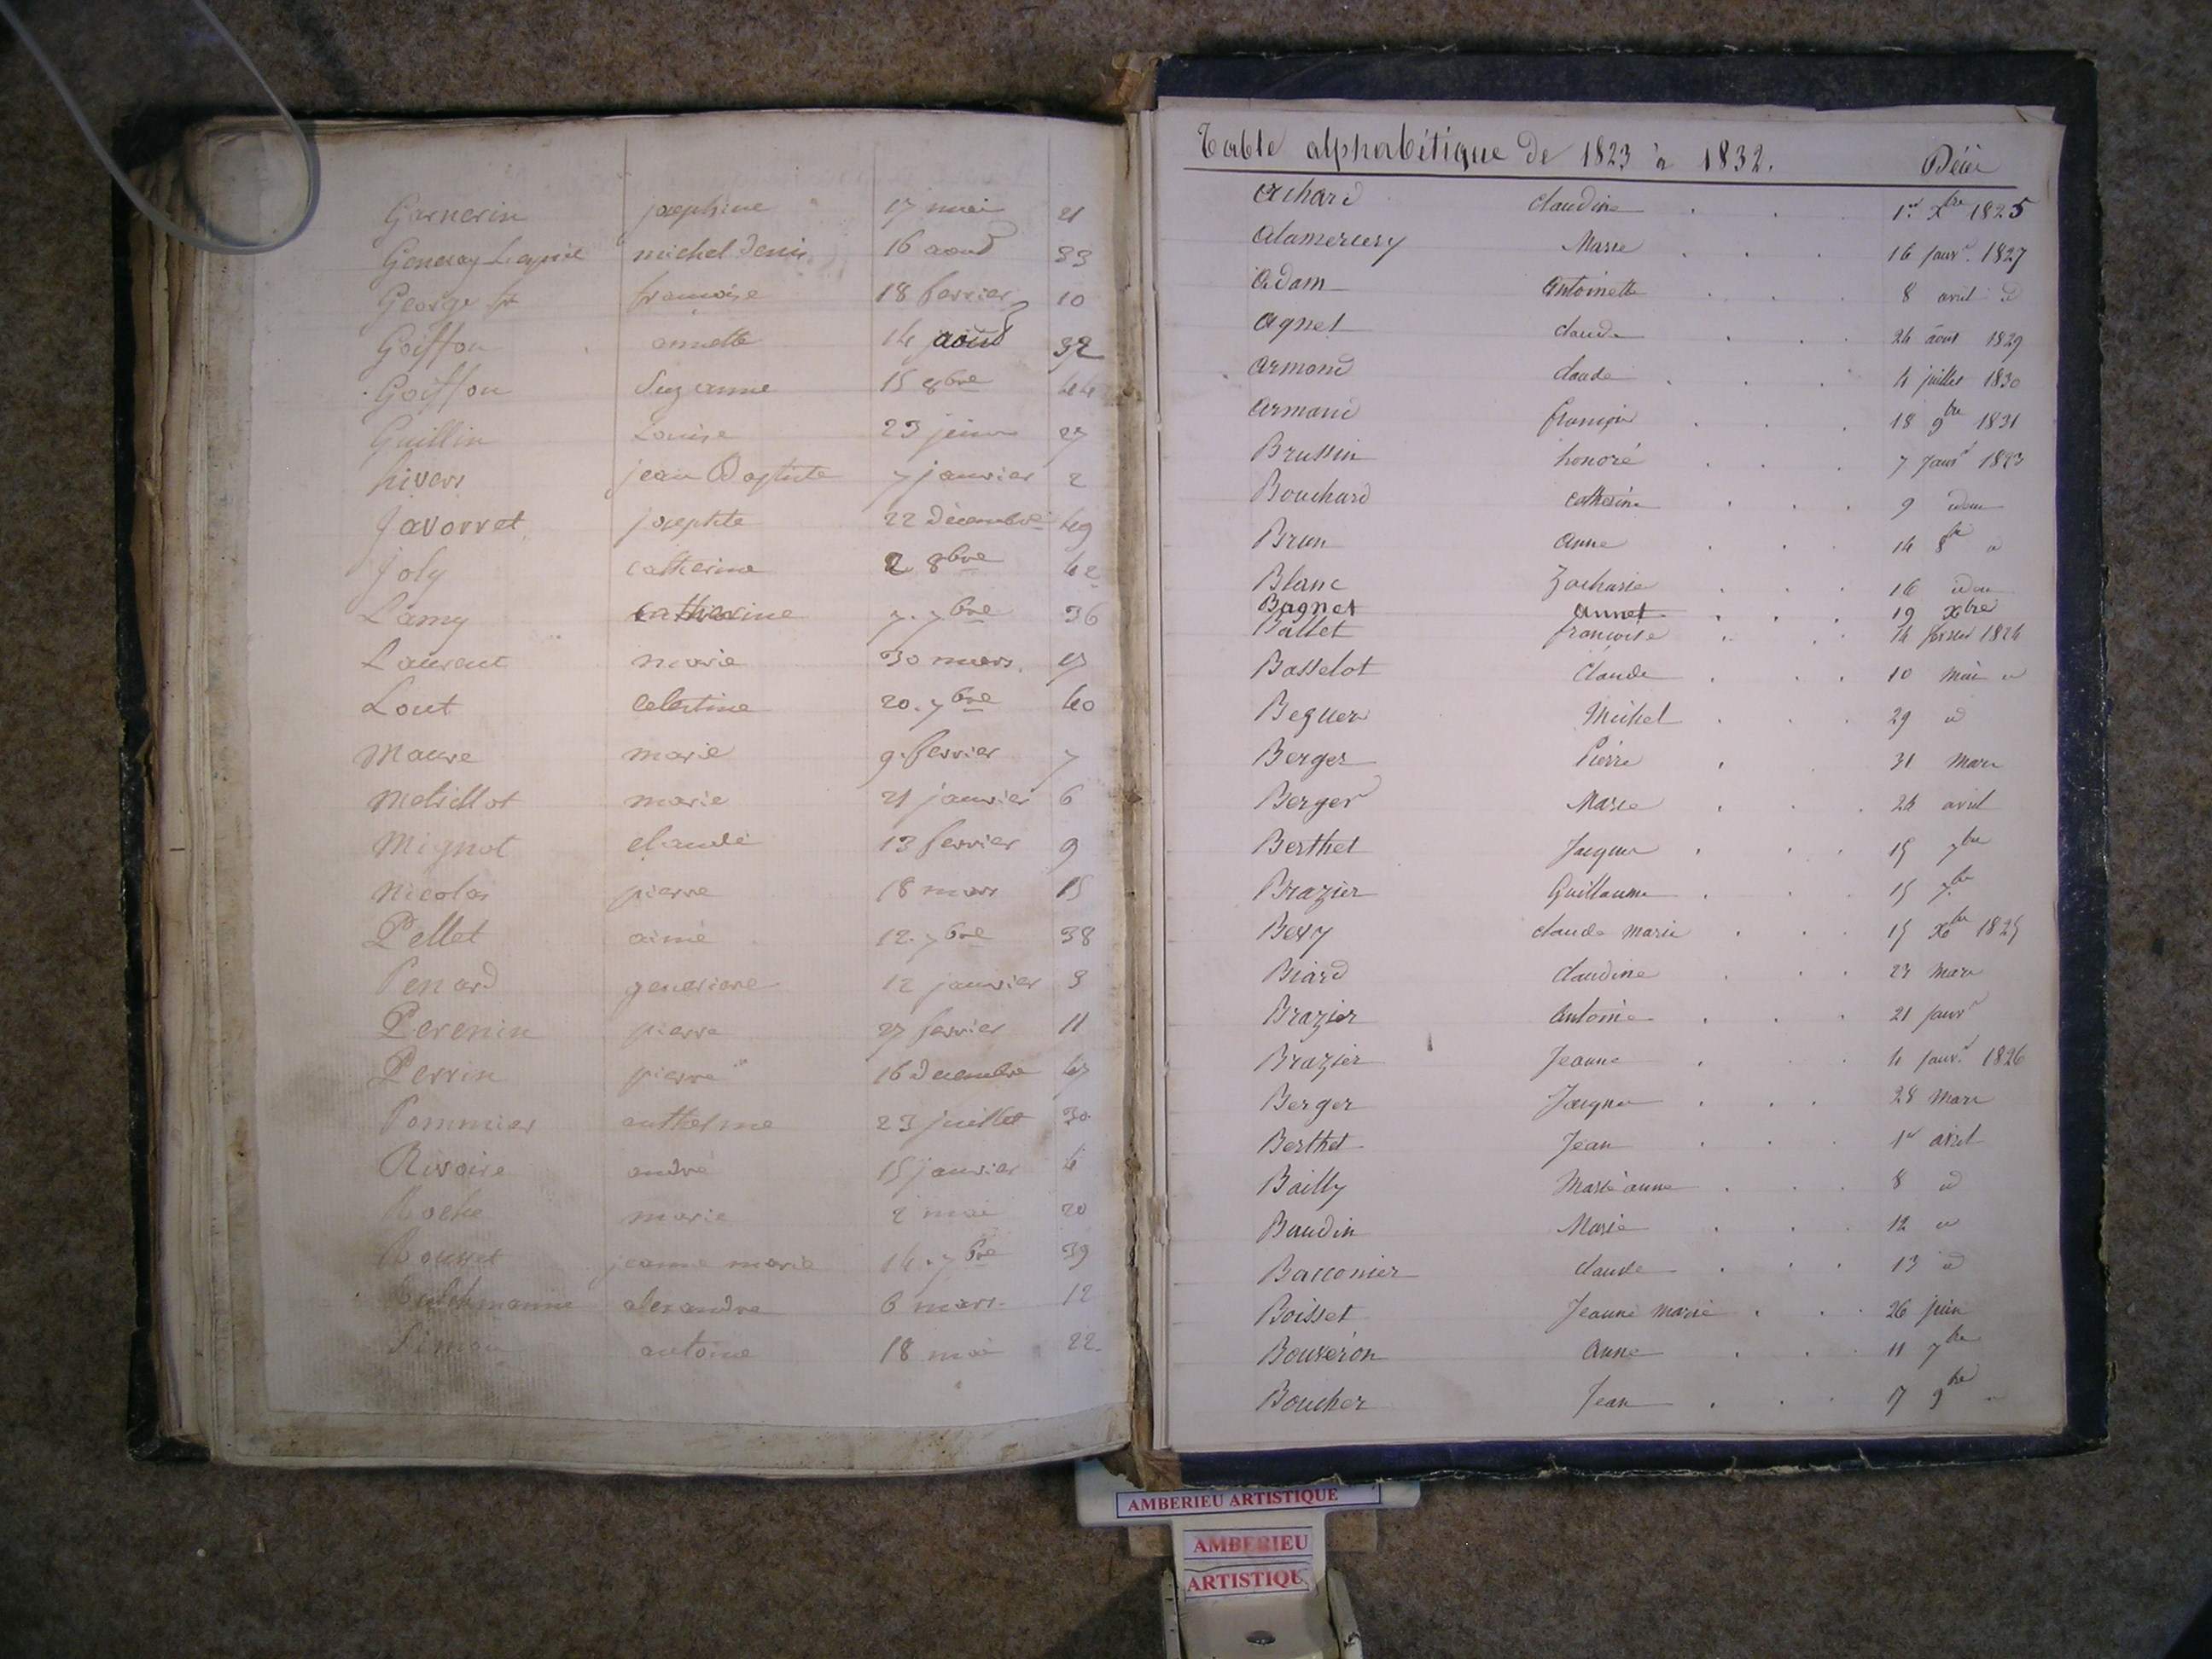 Garnerin josephine 17 mai 21
michel denis 16 aoud 33
George françoise 18 fevrier 10
Goiffon annette 14 aoud 32
Goiffon Suzanne 15 8bre 44
Guillin Louise 23 juin 27
hivers jean Baptiste 7 janvier 2
Javorret josephte 22 décembre 49
Joly catherine 2 8bre 42
Lamy catherine 7. 7bre 36
Laurent marie 30 mars. 17
Lout celestine 20. 7bre 40
Maure marie 9. fevrier 7
Metrillot marie 21 janvier 6
Mignot claude 13 fevrier 9
Nicolas pierre 18 mars 15
Pellet aimé 12. 7bre 38
Penard genevieve 12 janvier 3
Perenin pierre 27 fevrier 11
Perrin pierre 16 decembre 47
Pommier anthelme 23 juillet 30
Rivoire andré 15 janvier 4
Roche marie 2 mai 20
Rousset jeanne marie 14. 7bre 39
alexandre 6 mars. 12
Simon antoine 18 mai 22.
Table alphabétique de 1823 à 1832. Décès
Achard Claudine 1er Xbre 1825
Alamercery Marie 16 janvr. 1827
Adam Antoinette 8 avril d
Agnet claude 24 août 1829
Armand claude 4 juillet 1830
Armand françois 18 9bre 1831
Brussin honoré 7 Janvr 1823
Bouchard catherine 9 idem
Brun anne 14 8bre d
Blanc Zacharie 16 idem
Bagnet annet 19 Xbre
Ballet françoise 14 fevrier 1824
Basselot Claude 10 mai d
Beguer Michel 29 d
Berger Pierre 31 mars
Berger Marie 24 avril
Berthet Jacques 15 7bre
Brazier Guillaume 15 7bre
Bery claude marie 15 Xbre 1825
Biard Claudine 23 mars
Brazier Antoine 21 janvr
Brazier Jeanne 4 janvr. 1826
Berger Jacques 28 mars
Berthet Jean 1er avril
Bailly Marie anne 8 d
Baudin Marie 12 d
Bacconier claude 13 d
Boisset Jeanne marie 26 juin
Bouvéron Anne 11 7bre
Boucher Jean 17 9bre
AMBERIEU ARTISTIQUE
AMBERIEU
ARTISTIQU